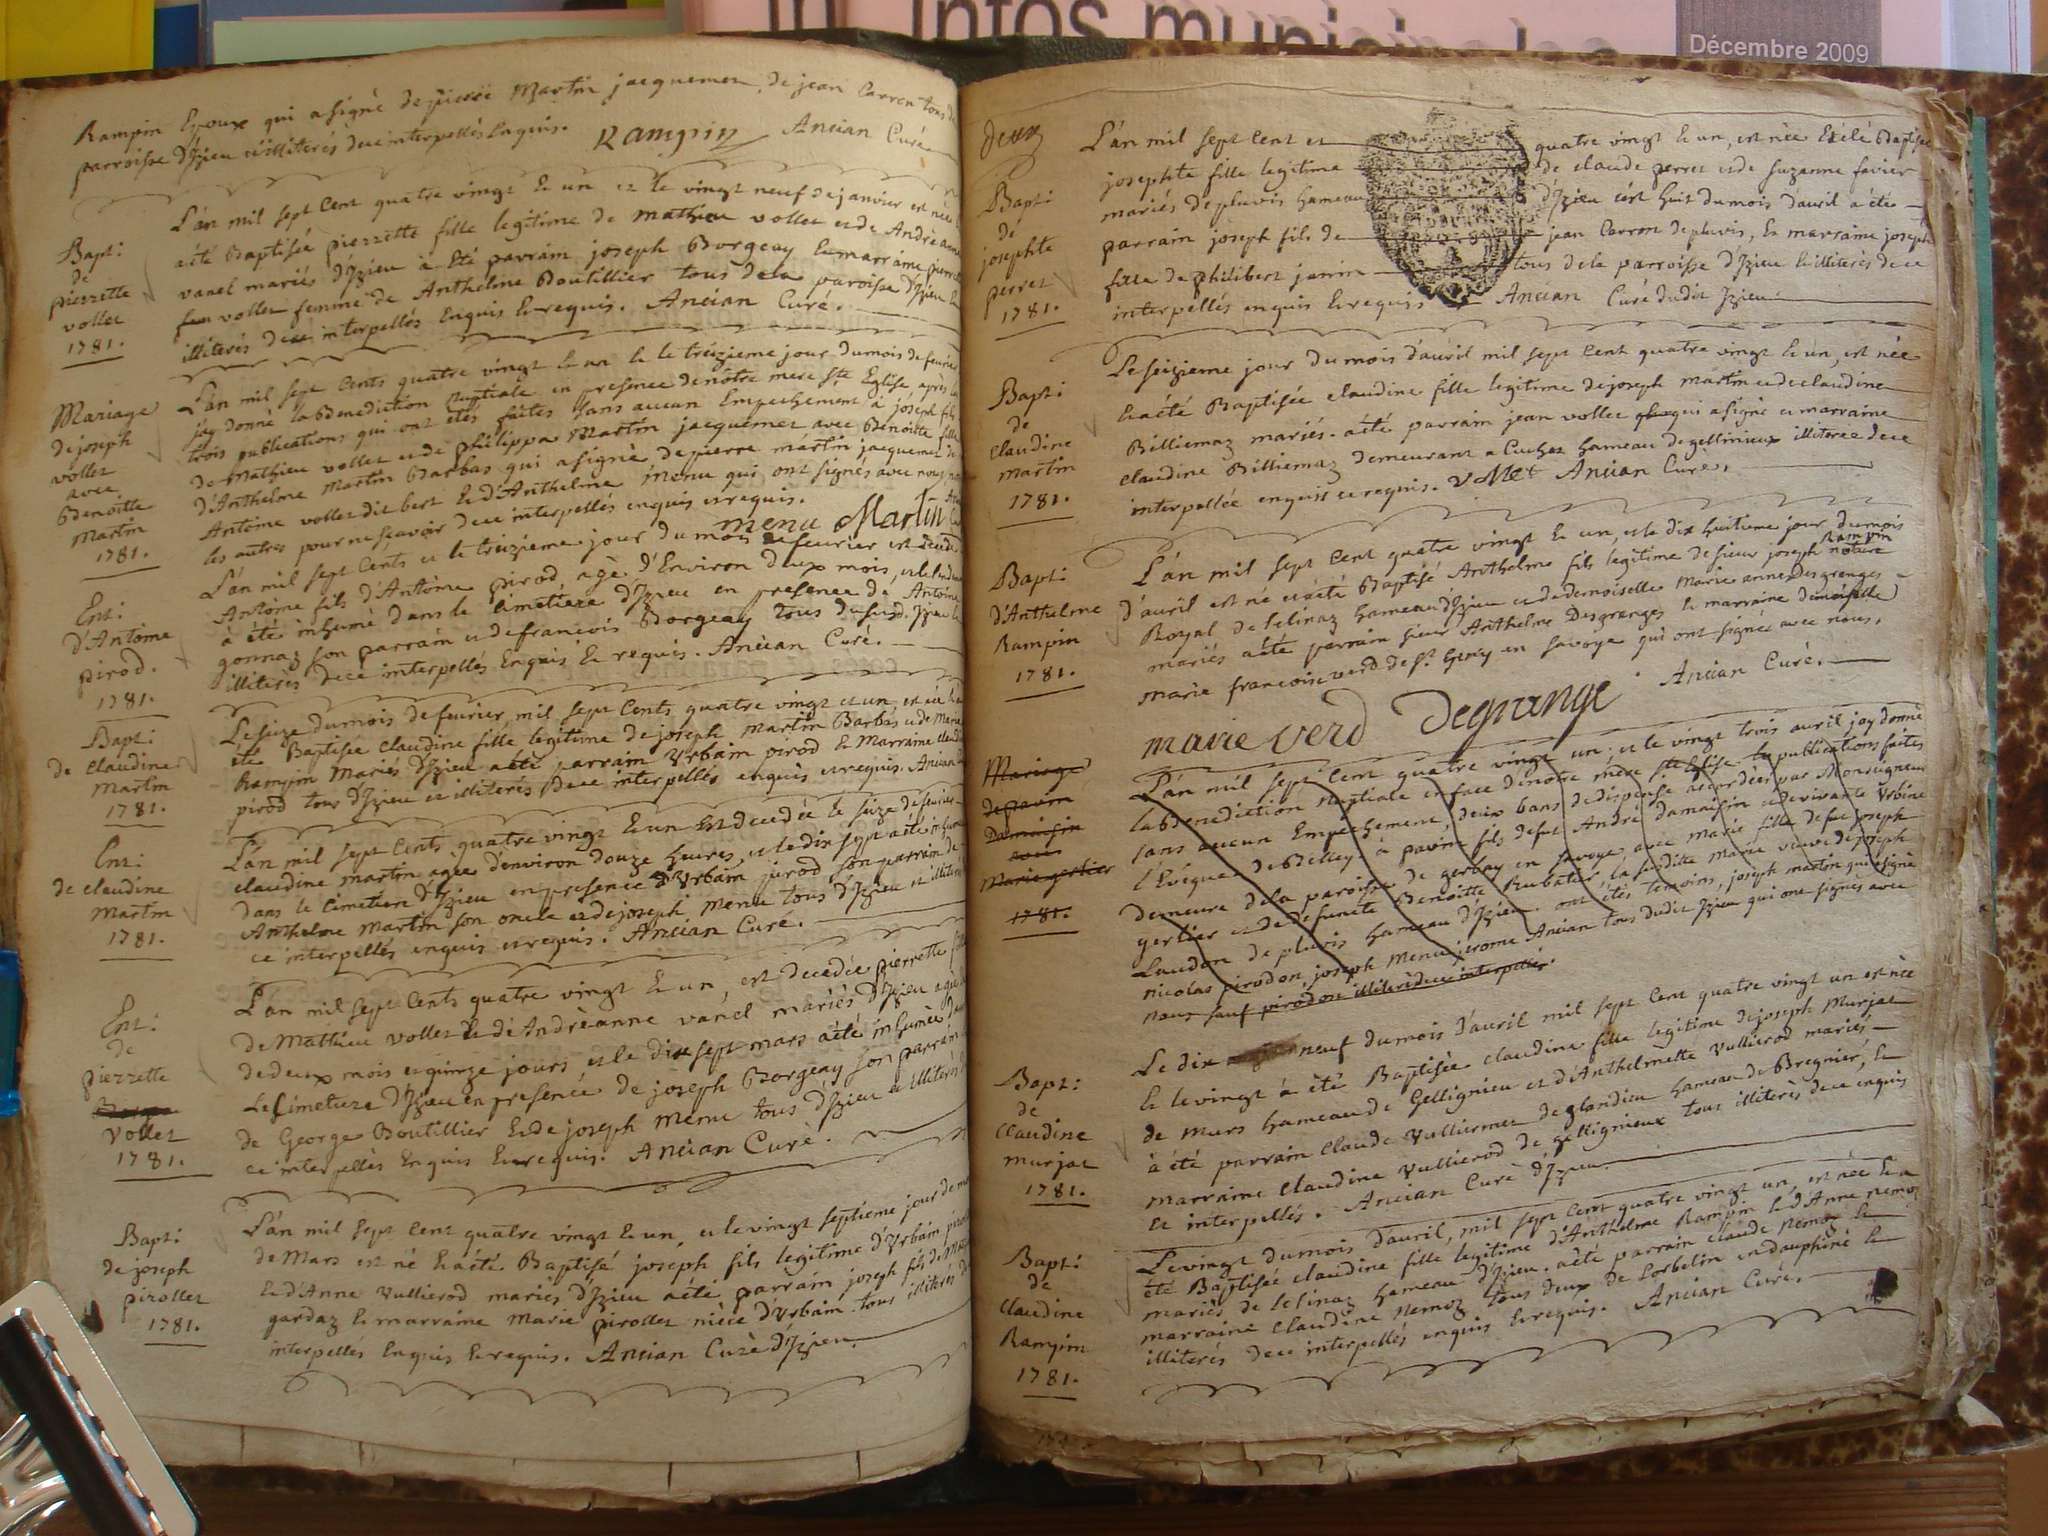 Infos municipales
Décembre 2009
Rampin Epoux qui a signé de pierre Martin jacquemet, de jean Carron tous de
parroisse d'Izieu et illiterés de ce interpellés Enquis. Rampin Ancian Curé
Bapt:
de
pierrette
vollet
1781.
L'an mil sept Cent quatre vingt & un et le vingt neuf de janvier est née
a été Baptisée pierrette fille legitime de mathieu vollet et de Andréanne
vanel mariés d'Izieu à été parrain joseph Borgeay & marraine pierrette
vollet femme de Anthelme Boutillier tous de la paroisse d'Izieu &
illiterés de ce interpellés Enquis & requis. Ancian Curé.
Mariage
de joseph
vollet
avec
Benoitte
Martin
1781.
L'an mil sept Cents quatre vingt & un & le treizieme jour du mois de fevrier
j'ay donné la Benediction nuptiale en presence de nôtre mere Ste Eglise après les
trois publications qui ont étés faites sans aucun Empechement à joseph fils
de Mathieu vollet et de philippa Martin jacquemet avec Benoitte fille
d'Anthelme Martin Barbas qui a signé de pierre martin jacquemet de
Antoine vollet dit bert & d'Anthelme Menu qui ont signés avec nous
les autres pour ne sçavoir de ce interpellés enquis et requis.
menu Martin
Ent:
d'Antoine
pirod.
1781.
L'an mil sept Cents et le treizieme jour du mois de fevrier est decedé
Antoine fils d'Antoine pirod, agé d'Environ deux mois, et le lendemain
à été inhumé dans le Cimetiere d'Izieu en presence de Antoine
gonnaz son parrain et de francois Borgeay tous dusud. Izieu &
illiterés de ce interpellés Enquis & requis. Ancian Curé.
Bapt:
de Claudine
Martin
1781.
Le seize du mois de fevrier, mil sept Cents quatre vingt et un, est née & a
été Baptisée Claudine fille legitime de joseph Martin Barbas et de Marie
Rampin Mariés d'Izieu a été parrain Urbain pirod & Marraine Claudine
pirod tous d'Izieu et illiterés de ce interpellés enquis et requis. Ancian
Ent:
de claudine
Martin
1781.
L'an mil sept Cents quatre vingt & un Est decedée le seize de fevrier
claudine martin agée d'environ douze heures, et le dix sept a été inhumée
dans le Cimetiere d'Izieu en presence d'Urbain pirod son parrain de
Anthelme Martin son oncle et de joseph Menu tous d'Izieu et illiterés
ce interpellés enquis et requis. Ancian Curé.
Ent:
de
pierrette
Vollet
1781.
L'an mil sept Cents quatre vingt & un, est decedée pierrette fille
de Mathieu vollet & de Andréanne vanel mariés d'Izieu agée
de deux mois et quinze jours, et le dix sept mars a été inhumée dans
Le Cimetiere d'Izieu en presence de joseph Borgeay son parrain
de George Boutillier & de joseph Menu tous d'Izieu et illiterés
ce interpellés Enquis & requis. Ancian Curé.
Bapt:
de joseph
pirollet
1781.
L'an mil sept Cent quatre vingt & un, et le vingt septieme jour de mois
de Mars est né & a été Baptisé joseph fils legitime d'Urbain pirollet
& d'Anne Vullierod mariés d'Izieu a été parrain joseph fils de
gardaz & marraine Marie pirollet niéce d'Urbain tous illiterés de
interpellés Enquis & requis. Ancian Curé d'Izieu
deux
Bapt:
de
josephte
perret
1781.
L'an mil sept Cent et quatre vingt & un, est née & a été Baptisée
josephte fille legitime de claude perret et de suzanne favier
mariés de pluvis hameau d'Izieu c'est huit du mois d'avril a été
parrain joseph fils de jean Carron de pluvis, & marraine josephte
fille de philibert janin tous de la parroisse d'Izieu & illiterés de ce
interpellés enquis & requis. Ancian Curé dudit Izieu
Bapt:
de
Claudine
Martin
1781.
Le seizieme jour du mois d'avril mil sept Cent quatre vingt & un, est née
& a été Baptisée claudine fille legitime de joseph martin et de claudine
Billiemaz mariés. a été parrain jean vollet qui a signé et marraine
claudine Billiemaz demeurant a Cuchet hameau de gellinieux illiterée de ce
interpellée enquis et requis. vollet Ancian Curé.
Bapt:
d'Anthelme
Rampin
1781.
L'an mil sept Cent quatre vingt & un, et le dix huitieme jour du mois
d'avril est né et a été Baptisé Anthelme fils legitime de sieur joseph Rampin notaire
Royal de Lelinaz hameau d'Izieu et de demoiselle Marie anne Desgranges
mariés a été parrain sieur Anthelme Desgranges & marraine demoiselle
Marie francoise verd de St. Geny en savoye qui ont signés avec nous.
marie verd Degrange Ancian Curé.
Mariage
de pavin
Damaisin
avec
Marie gerlier
1781.
L'an mil sept Cent quatre vingt un, et le vingt trois avril j'ay donné
la Benediction Nuptiale en face de nôtre mére Ste Eglise. La publications faites
sans aucun Empechement, deux bans de dispense accordées par Monseigneur
l'Evêque de Belley. à pavin fils de fut André damaisin et de vivante Urbine
demeure de la paroisse de gerbay en savoye, avec Marie fille de fut joseph
gerlier et de defuncte Benoitte Rubatier, la susditte Marie veuve de joseph
Laudon de pluvis hameau d'Izieu. ont étés temoins, joseph martin qui a signé
nicolas pirodon, joseph Menu, jerome Ancian tous dudit Izieu qui ont signés avec
nous sauf pirodon illiteré de ce interpellé.
Bapt:
de
Claudine
murjat
1781.
Le dix neuf du mois d'avril mil sept Cent quatre vingt un est née
& le vingt à été Baptisée claudine fille legitime de joseph Murjat
de Murs hameau de Gellignieu et d'Anthelmette Vullierod mariés
à été parrain Claude Vulliermet de glandieu hameau de Bregnier, &
marraine Claudine Vullierod de gellignieux tous illiterés de ce enquis
et interpellés. Ancian Curé d'Izieu
Bapt:
de
Claudine
Rampin
1781.
Le vingt du mois d'avril, mil sept Cent quatre vingt un, est née & a
été Baptisée Claudine fille legitime d'Anthelme Rampin & d'Anne nemoz
mariés de Lelinaz hameau d'Izieu. a été parrain claude nemoz &
marraine Claudine nemoz tous deux de Corbelin en dauphiné &
illiterés de ce interpellés enquis & requis. Ancian Curé.